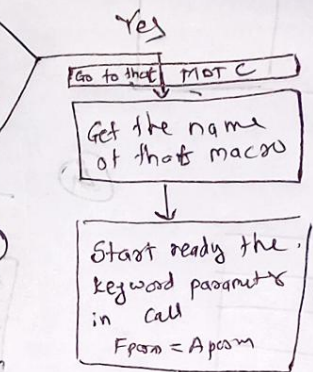 Yes
Go to that MDT C
Get the name
of that macro
Start ready the.
keyword parametr
in call
Fparm = Aparm